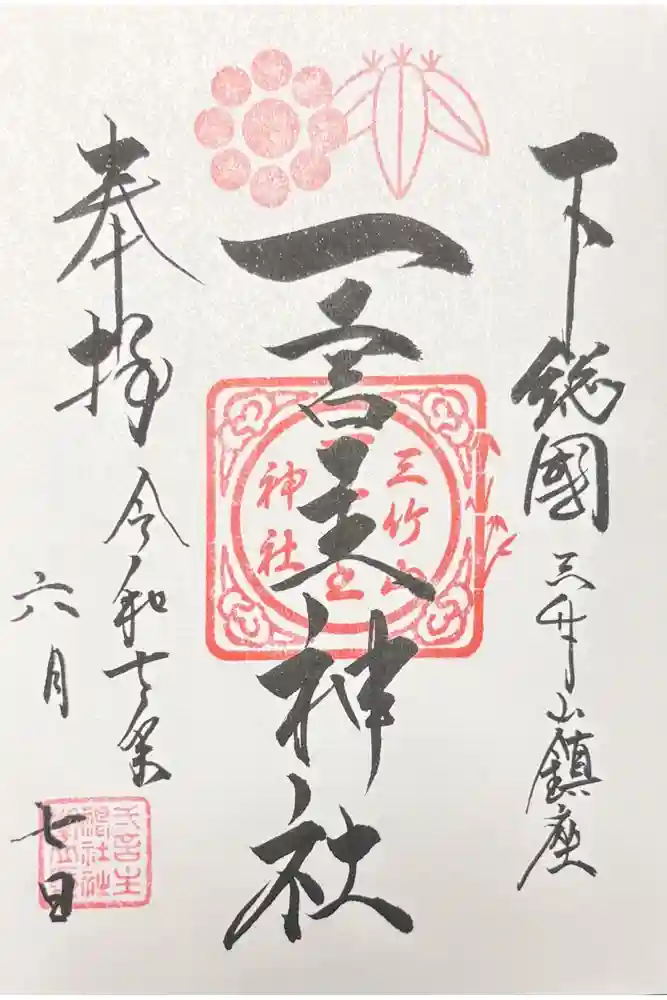 下総國 三竹山鎮座
一言主神社
奉拝 令和七年
六月 七日
三竹山
神社